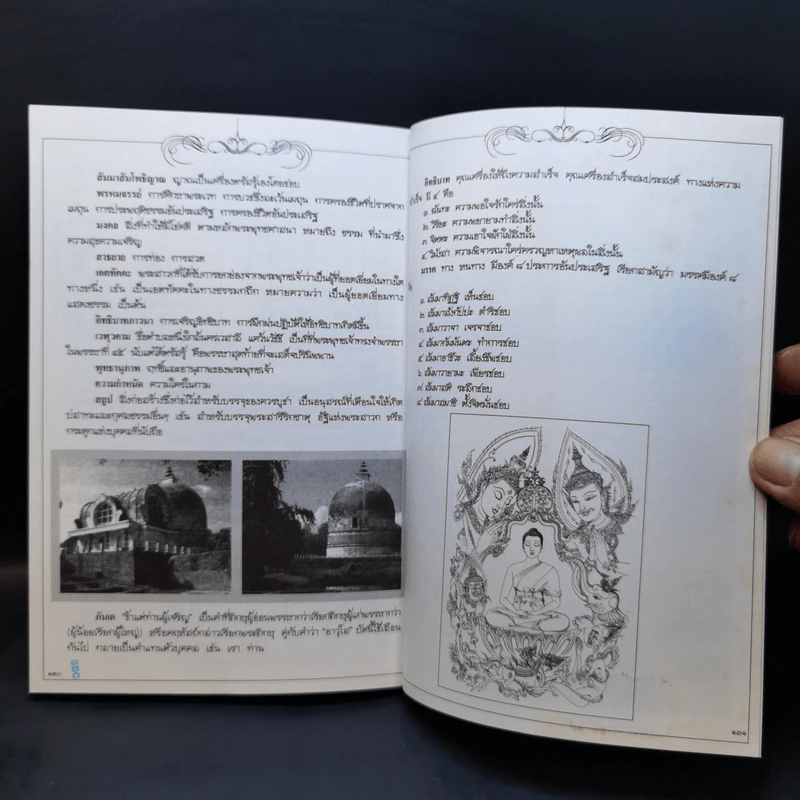 สัมมาสัมโพธิญาณ ญาณเป็นเครื่องตรัสรู้เองโดยชอบ
พรหมจรรย์ การศึกษาพระเวท การบวชซึ่งละเว้นเมถุน การครองชีวิตที่ปราศจาก
เมถุน การประพฤติธรรมอันประเสริฐ การครองชีวิตอันประเสริฐ
มงคล สิ่งที่ทำให้มีโชคดี ตามหลักพระพุทธศาสนา หมายถึง ธรรม ที่นำมาซึ่ง
ความสุขความเจริญ
สาธยาย การท่อง การสวด
เอตทัคคะ พระสาวกที่ได้รับการยกย่องจากพระพุทธเจ้าว่าเป็นผู้ยอดเยี่ยมในทางใด
ทางหนึ่ง เช่น เป็นเอตทัคคะในทางธรรมกถึก หมายความว่า เป็นผู้ยอดเยี่ยมทาง
แสดงธรรม เป็นต้น
อิทธิบาทภาวนา การเจริญอิทธิบาท การฝึกฝนปฏิบัติให้อิทธิบาทเกิดมีขึ้น
เวฬุวคาม ชื่อตำบลหนึ่งใกล้นครเวสาลี แคว้นวัชชี เป็นที่ที่พระพุทธเจ้าทรงจำพรรษา
ในพรรษาที่ ๔๕ นับแต่ได้ตรัสรู้ คือพรรษาสุดท้ายที่จะเสด็จปรินิพพาน
พุทธานุภาพ ฤทธิ์และอานุภาพของพระพุทธเจ้า
ความกำหนัด ความใคร่ในกาม
สถูป สิ่งก่อสร้างซึ่งก่อไว้สำหรับบรรจุของควรบูชา เป็นอนุสรณ์ที่เตือนใจให้เกิด
ปสาทะและกุศลธรรมอื่นๆ เช่น สำหรับบรรจุพระสารีริกธาตุ อัฐิแห่งพระสาวก หรือ
กระดูกแห่งบุคคลที่นับถือ
ภันเต "ข้าแต่ท่านผู้เจริญ" เป็นคำที่ภิกษุผู้อ่อนพรรษากว่าเรียกภิกษุผู้แก่พรรษากว่า
(ผู้น้อยเรียกผู้ใหญ่) หรือคฤหัสถ์กล่าวเรียกพระภิกษุ คู่กับคำว่า "อาวุโส" ปัดนี้ใช้เลือน
กันไป กลายเป็นคำแทนตัวบุคคล เช่น เรา ท่าน
๑๓๐
SBC
อิทธิบาท คุณเครื่องให้ถึงความสำเร็จ คุณเครื่องสำเร็จสมประสงค์ ทางแห่งความ
สำเร็จ มี ๔ คือ
๑. ฉันทะ ความพอใจรักใคร่สิ่งนั้น
๒. วิริยะ ความพยายามทำสิ่งนั้น
๓. จิตตะ ความเอาใจฝักใฝ่สิ่งนั้น
๔. วิมังสา ความพิจารณาใคร่ครวญหาเหตุผลในสิ่งนั้น
มรรค ทาง หนทาง มีองค์ ๘ ประการอันประเสริฐ เรียกสามัญว่า มรรคมีองค์ ๘
๑. สัมมาทิฏฐิ เห็นชอบ
๒. สัมมาสังกัปปะ ดำริชอบ
๓. สัมมาวาจา เจรจาชอบ
๔. สัมมากัมมันตะ ทำการชอบ
๕. สัมมาอาชีวะ เลี้ยงชีพชอบ
๖. สัมมาวายามะ เพียรชอบ
๗. สัมมาสติ ระลึกชอบ
๘. สัมมาสมาธิ ตั้งจิตมั่นชอบ
๑๓๑